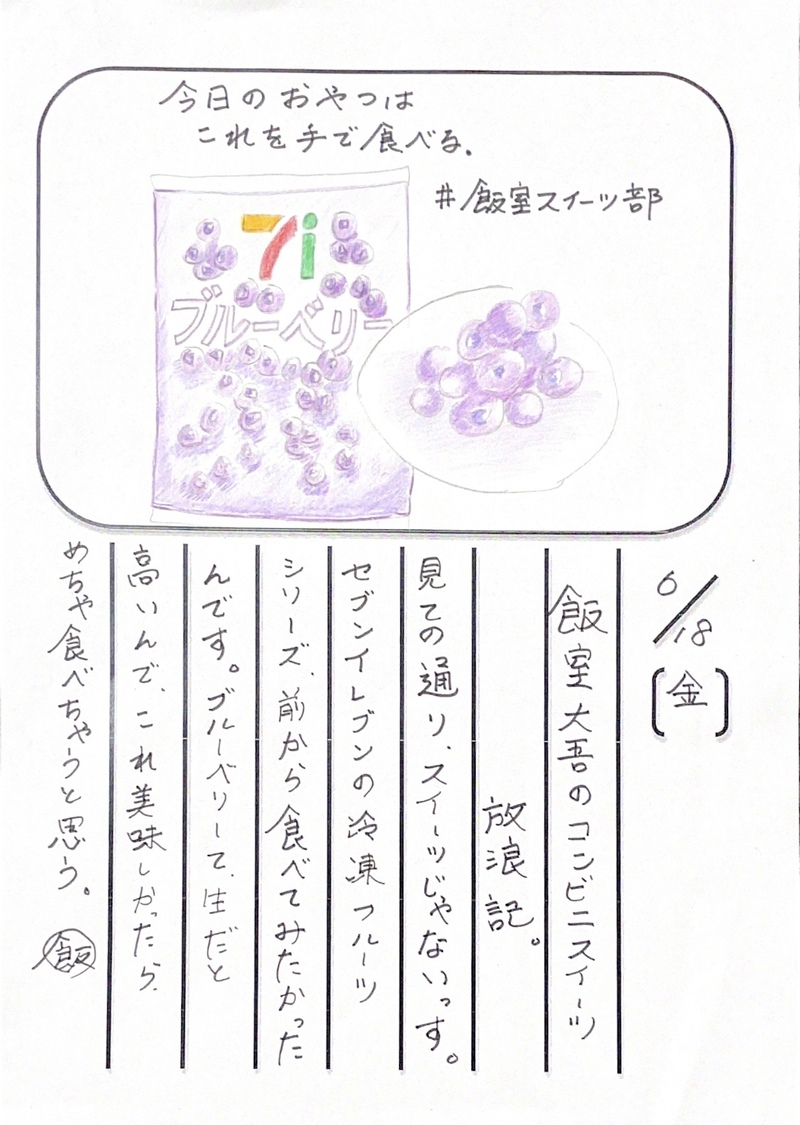 今日のおやつは
これを手で食べる.
#飯室スイーツ部
7i
ブルーベリー
6/18
[金]
飯室大吾のコンビニスイーツ
放浪記。
見ての通り、スイーツじゃないっす。
セブンイレブンの冷凍フルーツ
シリーズ、前から食べてみたかった
んです。ブルーベリーて、生だと
高いんで、これ美味しかったら、
めちゃ食べちゃうと思う。
飯